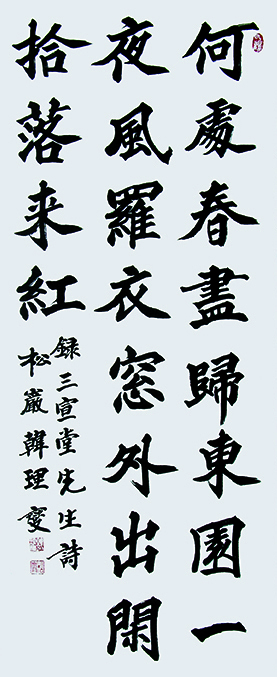 何處春盡歸東園一
夜風羅衣窓外出閑
拾落来紅
録三宣堂先生詩
松巖韓理燮